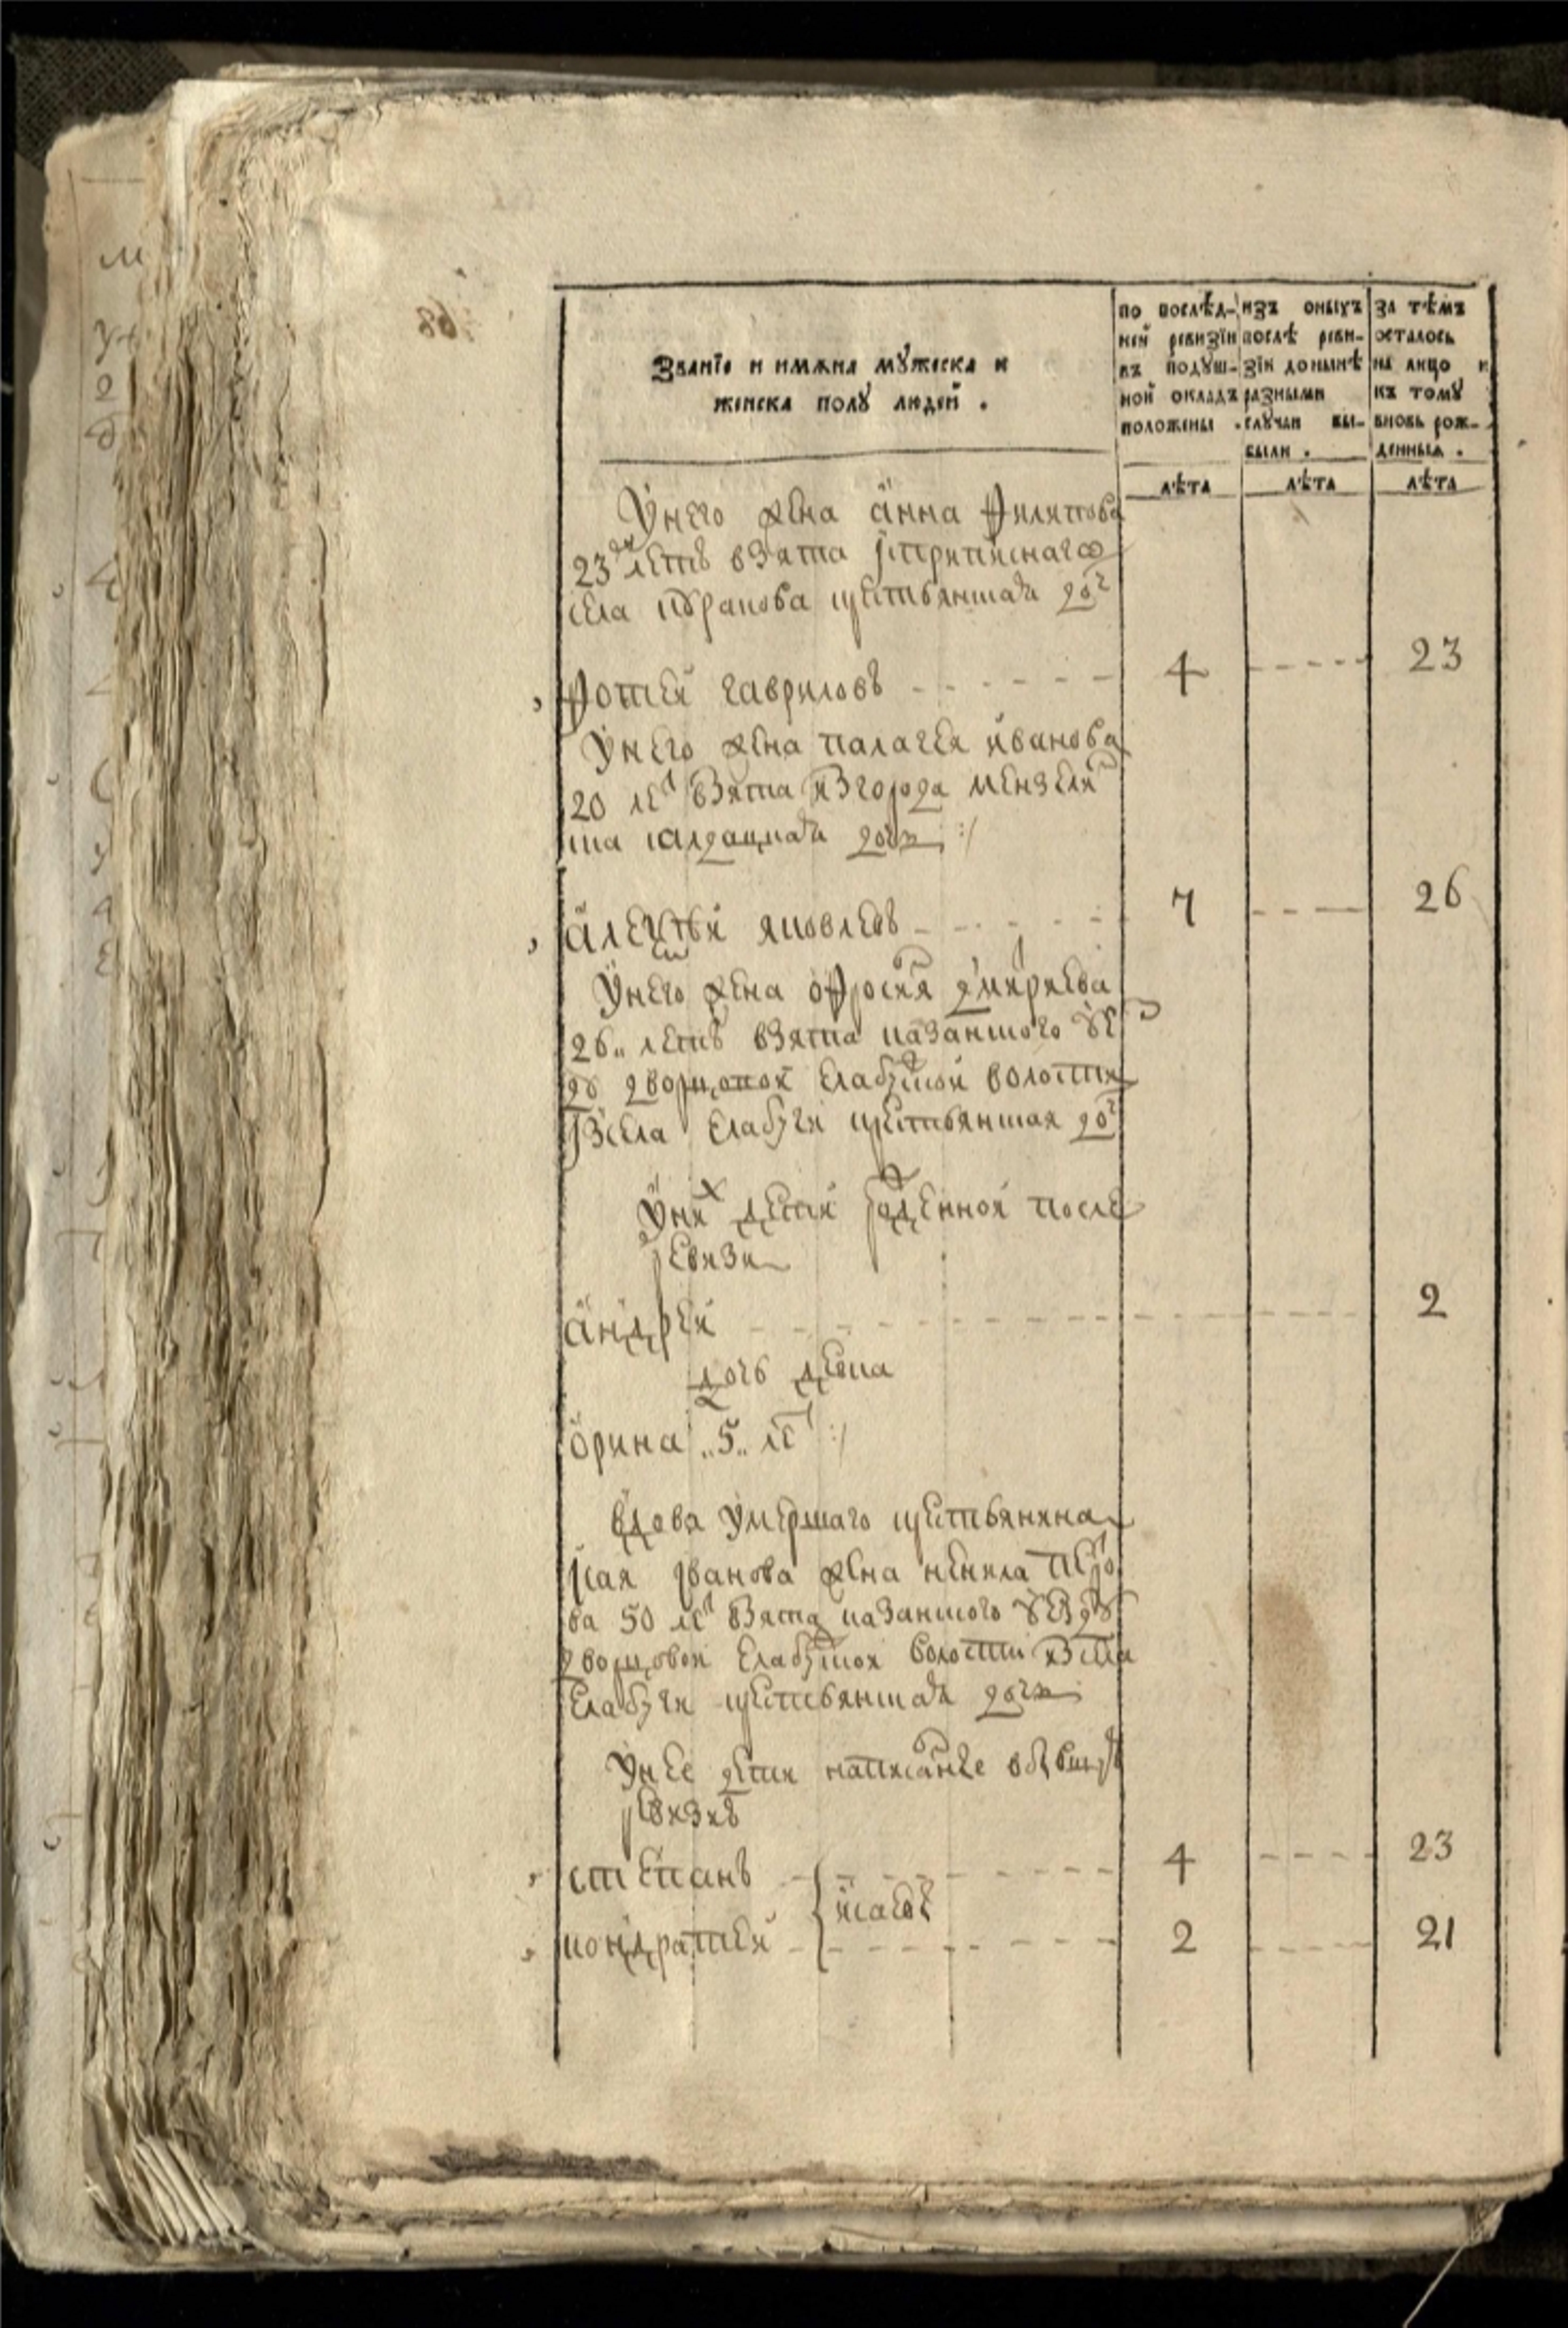 Званїе и имѧна мꙋжеска и
женска полꙋ людей .
по послѣд-
ней ревизїи
въ подꙋш-
ной окладъ
положены .
изъ оныхъ
послѣ реви-
зїи донынѣ
разными
слꙋчаи вы-
были .
за тѣмъ
осталось
на лицо и
къ томꙋ
вновь рож-
денныѧ .
лѣта
лѣта
лѣта
У него жена анна Филипова
23 летъ взята
села крестьянская доч
Фотей гавриловъ 4 23
У него жена палагея иванова
20 лет взята из города мензелин
ска салдацкая дочь :/
алексей яковлевъ 7 26
У него жена офросиня дмириева
26 летъ взята казанского уе
зду дворцовой елабуской волости
из села елабуги крестьянская доч
У них дети рожденной после
ревизи
андрей 2
дочь девка
орина 5 лет :/
вдова умершаго крестьянина
исая иванова жена ненила петро
ва 50 лет взята казанского уезду
дворцовой елабуской волости из села
елабуги крестьянская дочь
У нее дети написание в бывшую
ревизию
степанъ 4 23
исаевы
кондратей 2 21